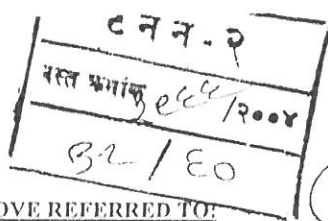 ट न न - २
दस्त क्रमांक ३९८८ /२००४
३२ / ६०
OVE REFERRED TO: